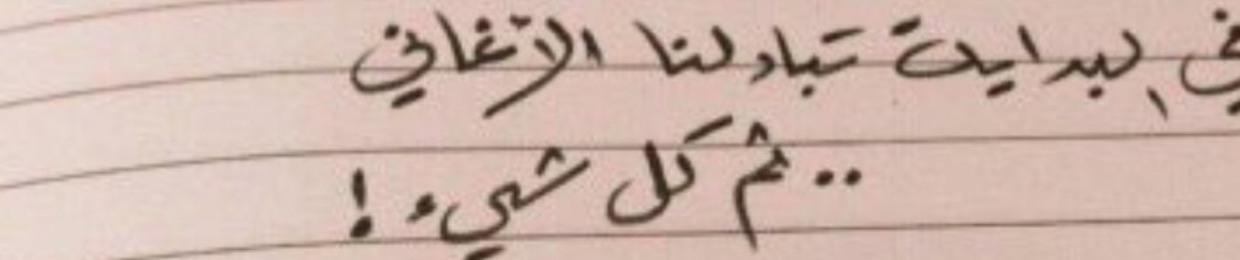 في البداية تبادلنا الأغاني
.. ثم كل شيء !